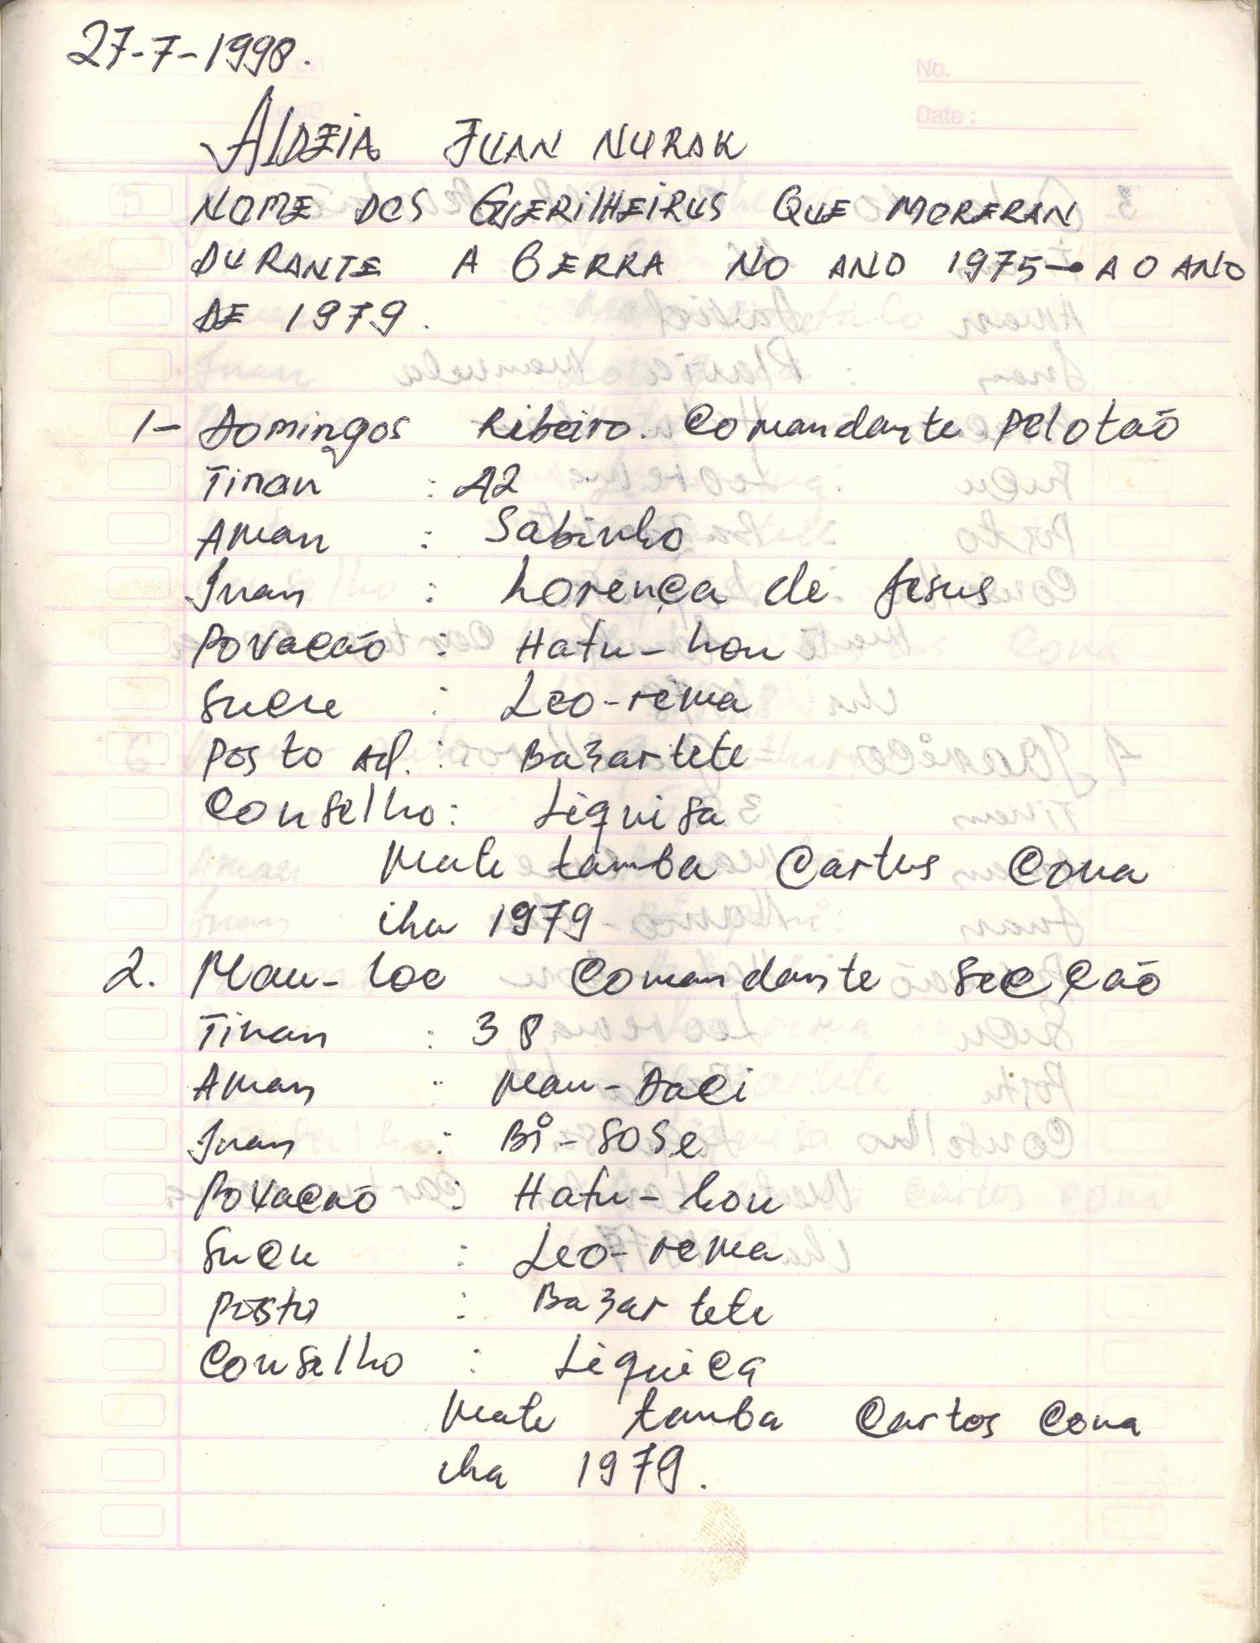 27-7-1998.
No.
Date:
AlDEiA JUAN NURAK
NOME DOS GUERilHEIRUS QUE MORERAN
DURANTE A GERRA NO ANO 1975 → A O ANO
DE 1979.
1- Domingos Ribeiro. Comandante Pelotaõ
Tinan : 42
Aman : Sabinho
Inan : Lorença de Jesus
Povacão : Hatu-hou
Sucu : Leo-rema
Posto Ad. : Bazartete
Conselho : Liquisa
Mate tamba Cartus Cona
iha 1979
2. Mau-loe Comandante Secção
Tinan : 38
Aman : Mau-Daci
Inan : Bi-Sose
Povacão : Hatu-hou
Sucu : Leo-rema
Posto : Bazartete
Conselho : Liquica
Mate tamba Cartos Cona
iha 1979.